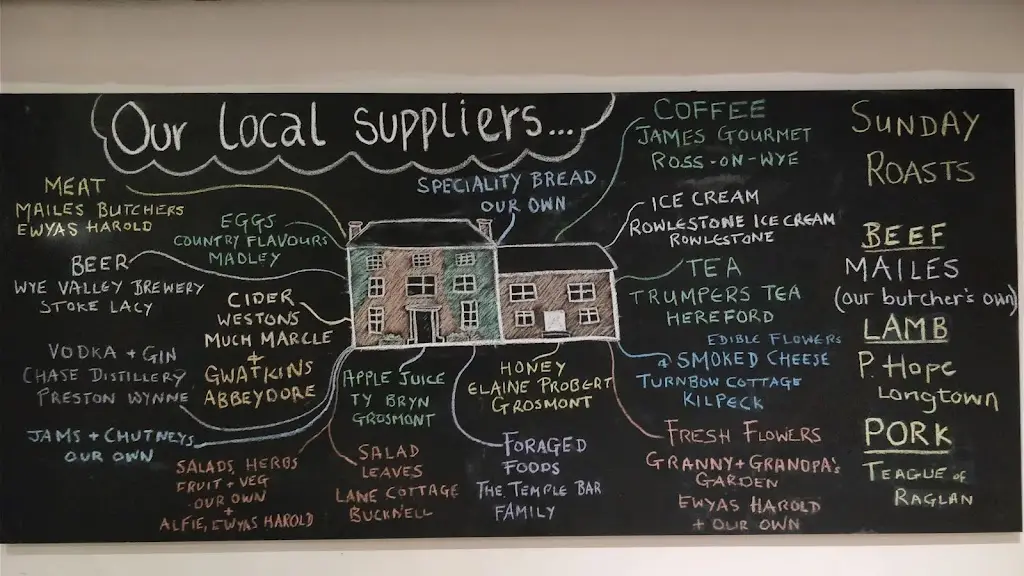 Our local suppliers...
MEAT
MAILES BUTCHERS
EWYAS HAROLD
EGGS
COUNTRY FLAVOURS
MADLEY
BEER
WYE VALLEY BREWERY
STOKE LACY
CIDER
WESTONS
MUCH MARCLE
+
GWATKINS
ABBEYDORE
VODKA + GIN
CHASE DISTILLERY
PRESTON WYNNE
JAMS + CHUTNEYS
OUR OWN
SALADS, HERBS
FRUIT + VEG
OUR OWN
+
ALFIE, EWYAS HAROLD
APPLE JUICE
TY BRYN
GROSMONT
SALAD
LEAVES
LANE COTTAGE
BUCKNELL
SPECIALITY BREAD
OUR OWN
HONEY
ELAINE PROBERT
GROSMONT
FORAGED
FOODS
THE TEMPLE BAR
FAMILY
COFFEE
JAMES GOURMET
ROSS-ON-WYE
ICE CREAM
ROWLESTONE ICE CREAM
ROWLESTONE
TEA
TRUMPERS TEA
HEREFORD
EDIBLE FLOWERS
& SMOKED CHEESE
TURNBOW COTTAGE
KILPECK
FRESH FLOWERS
GRANNY + GRANDPA'S
GARDEN
EWYAS HAROLD
+ OUR OWN
SUNDAY
ROASTS
BEEF
MAILES
(our butcher's own)
LAMB
P. Hope
Longtown
PORK
TEAGUE OF
RAGLAN